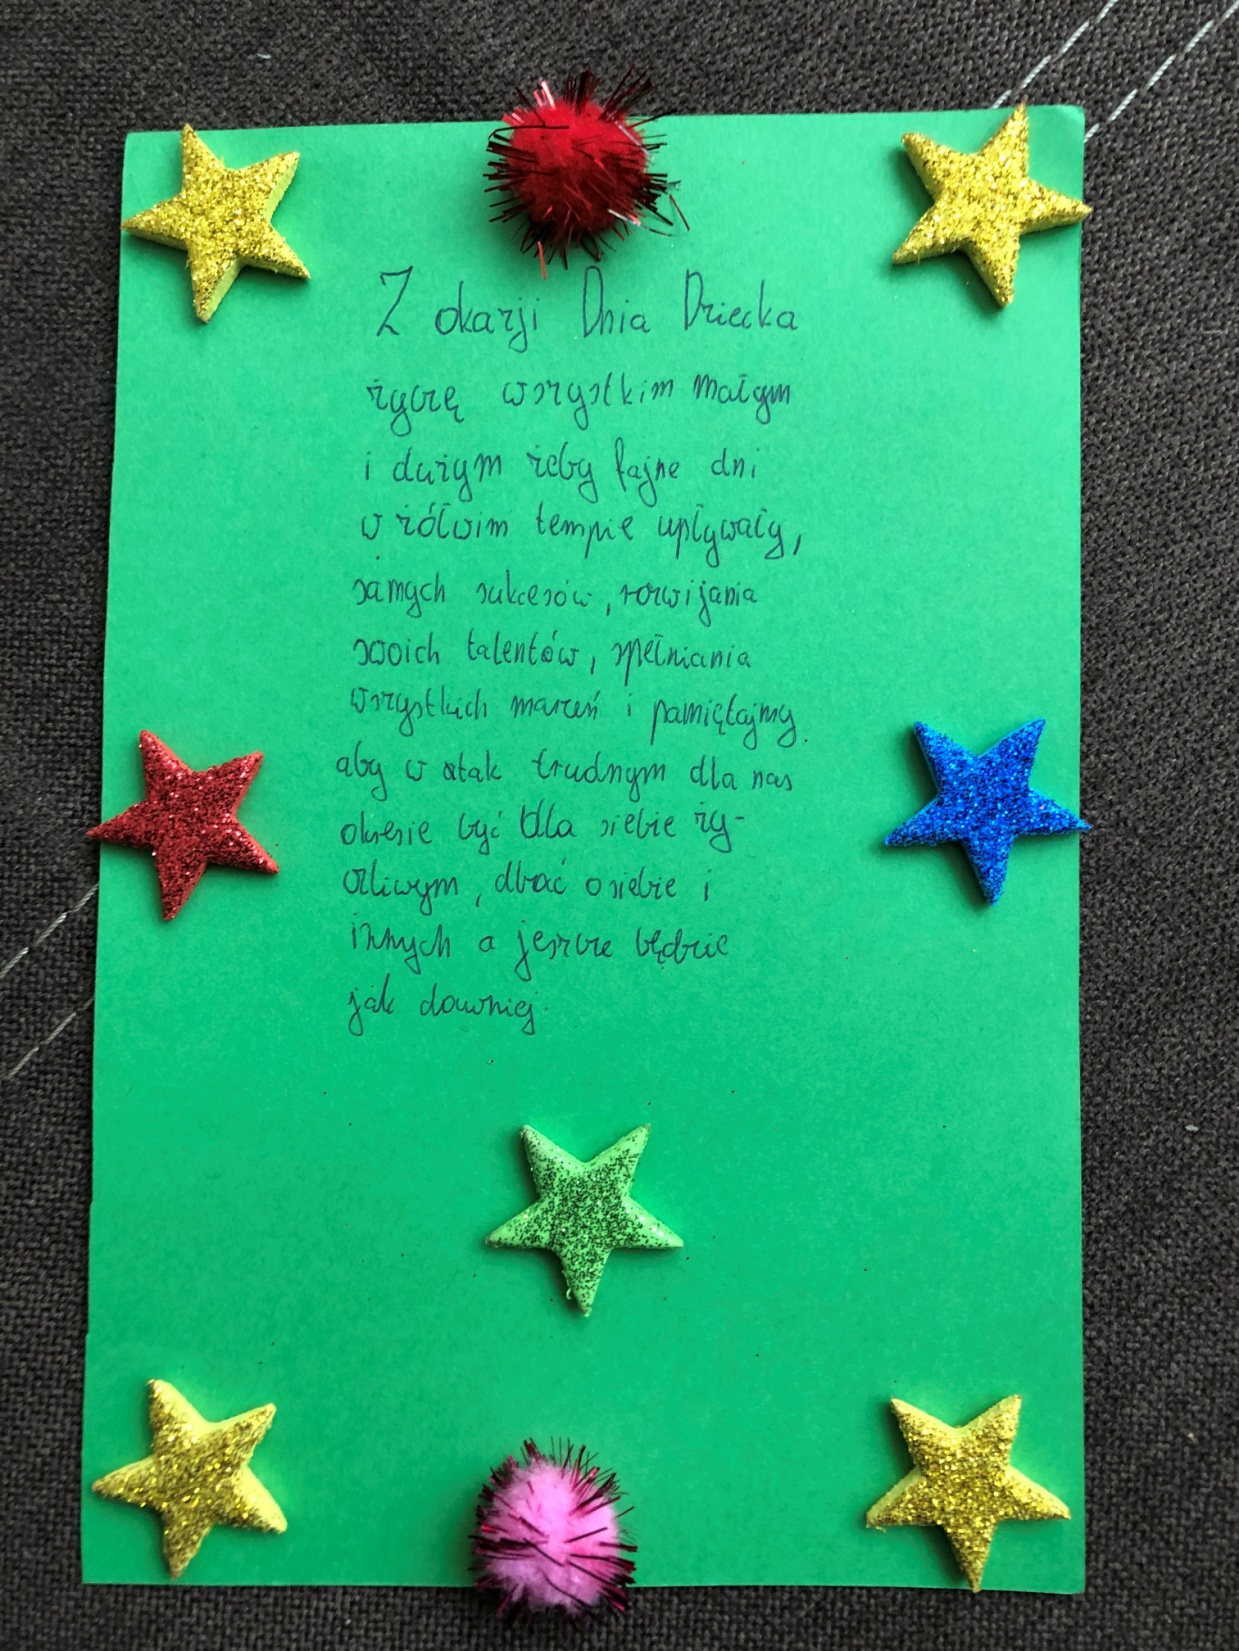 Z okazji Dnia Dziecka
życzę wszystkim małym
i dużym żeby fajne dni
w żółwim tempie upływały,
samych sukcesów, rozwijania
swoich talentów, spełniania
wszystkich marzeń i pamiętajmy
aby w tak trudnym dla nas
okresie być dla siebie ży-
czliwym, dbać o siebie i
innych a jeszcze będzie
jak dawniej.